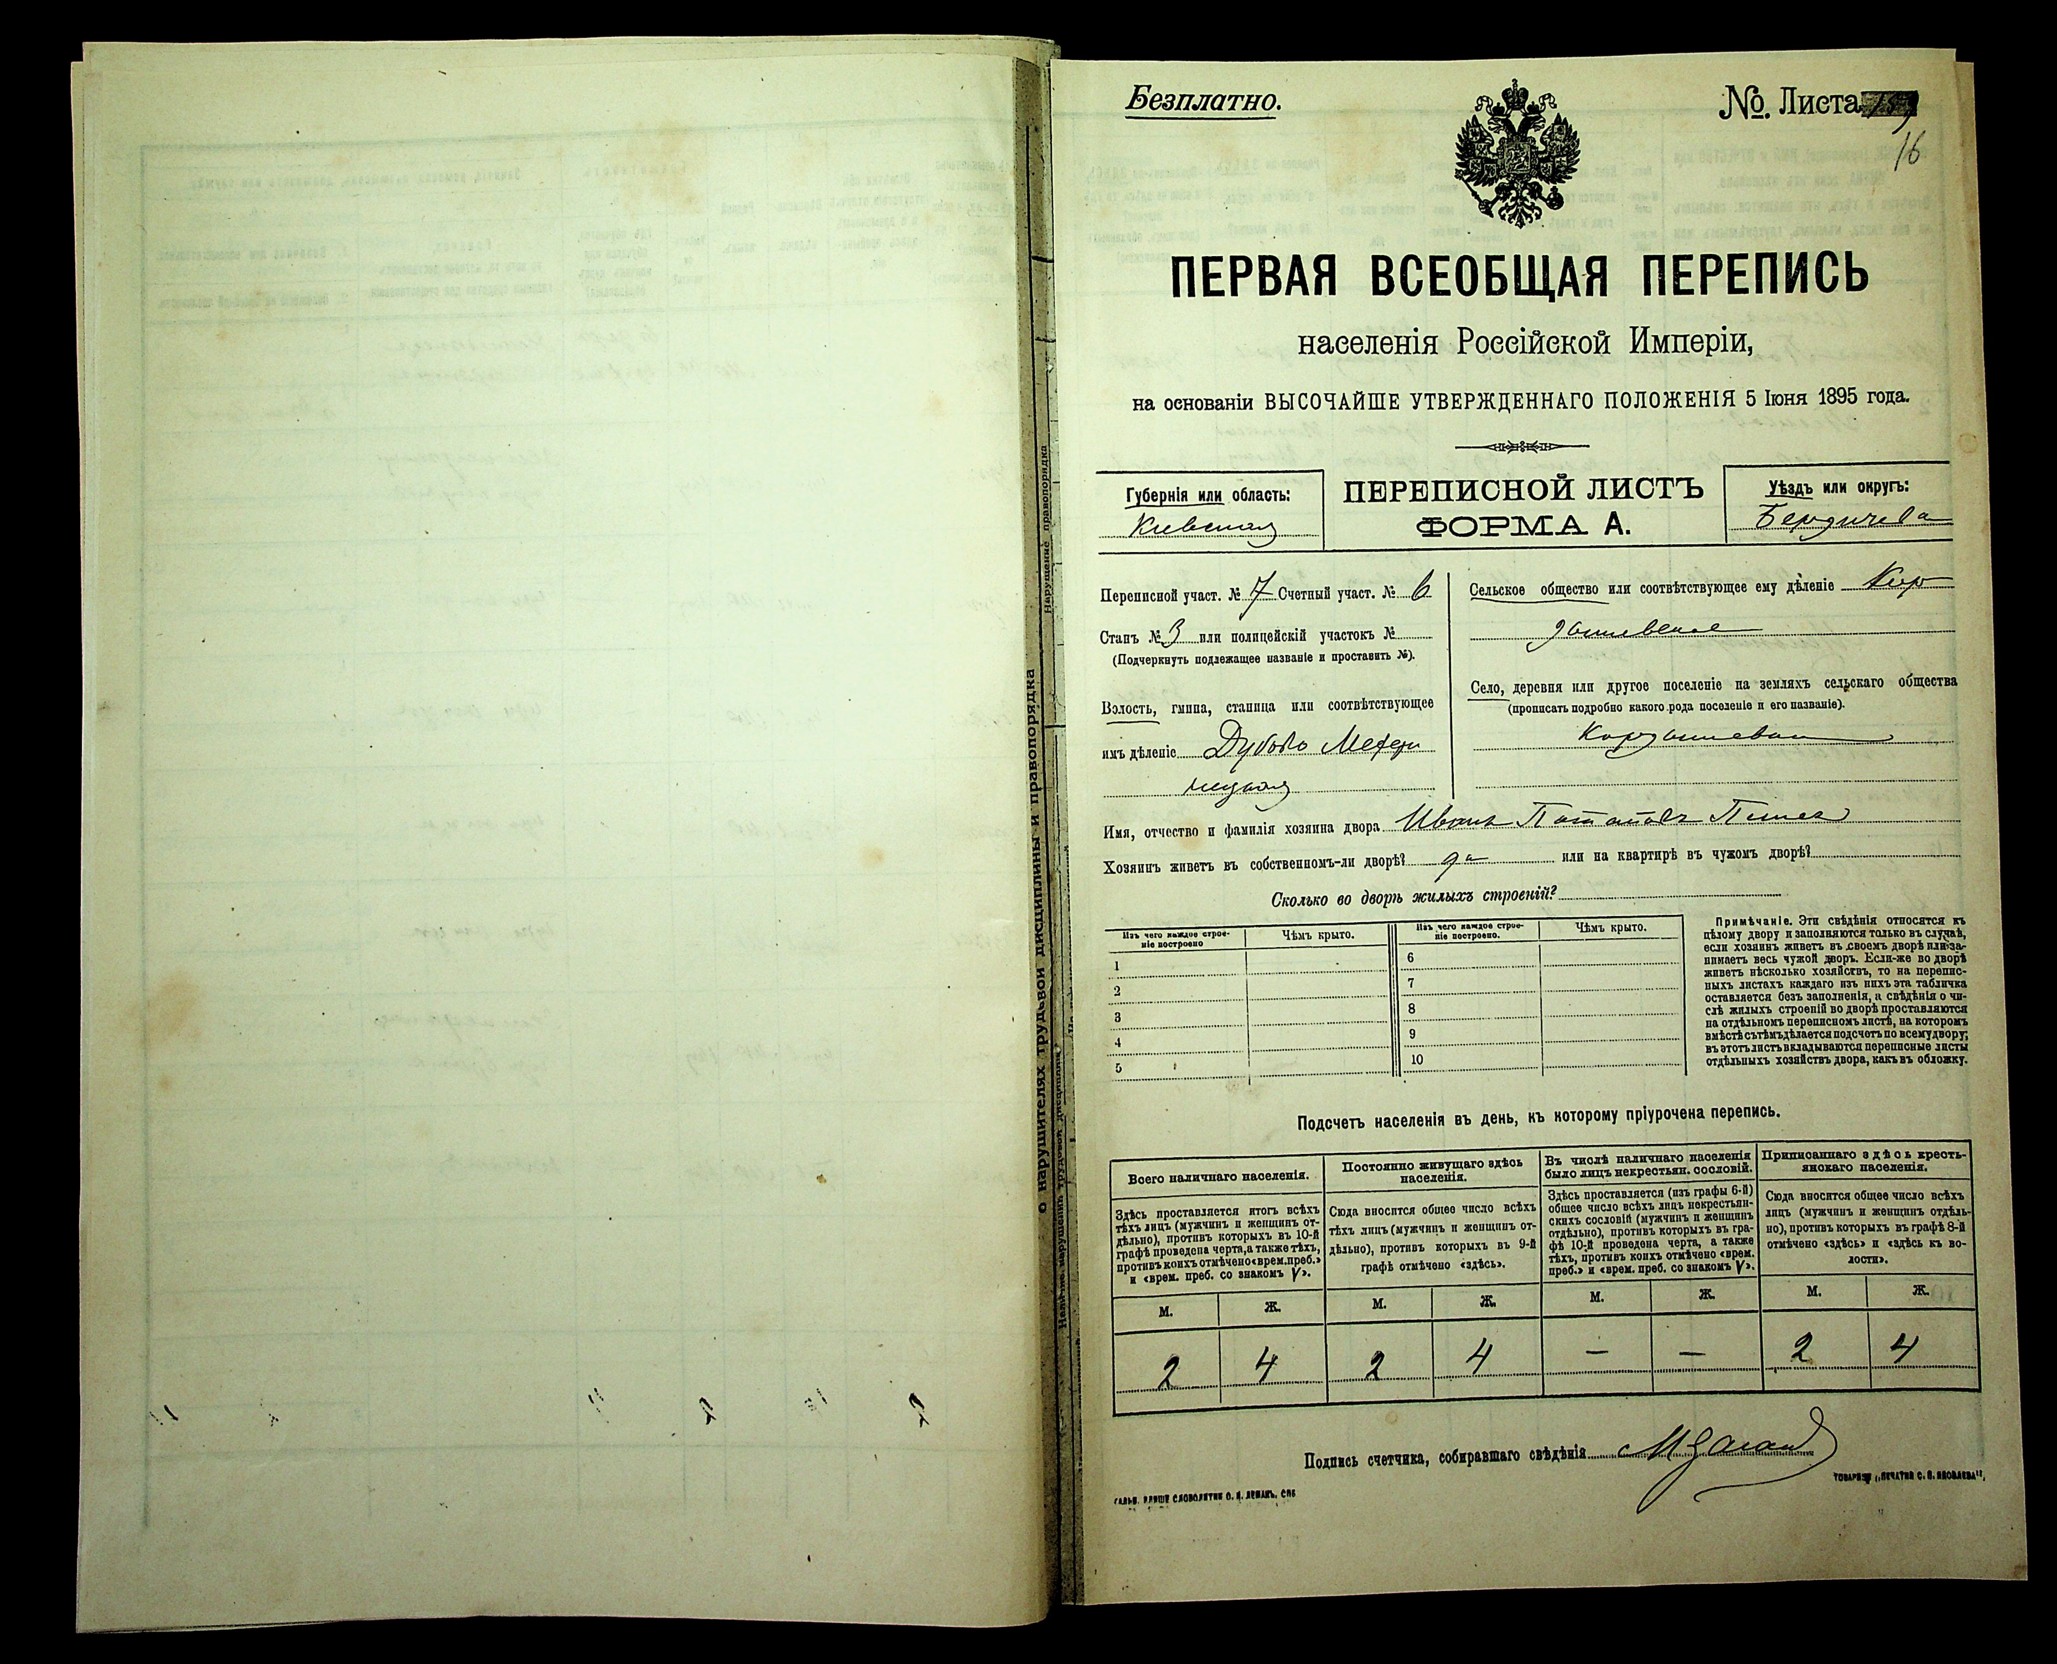 Безплатно.
№. Листа
16
ПЕРВАЯ ВСЕОБЩАЯ ПЕРЕПИСЬ
населенія Россійской Имперіи,
на основаніи ВЫСОЧАЙШЕ УТВЕРЖДЕННАГО ПОЛОЖЕНІЯ 5 Іюня 1895 года.
Губернія или область:
Кіевская
ПЕРЕПИСНОЙ ЛИСТЪ
ФОРМА А.
Уѣздъ или округъ:
Бердичева
Переписной участ. № 7 Счетный участ. № 6
Станъ № 3 или полицейскій участокъ №
(Подчеркнуть подлежащее названіе и проставить №).
Волость, гмина, станица или соотвѣтствующее
имъ дѣленіе Дубово Мехери
нецкая
Сельское общество или соотвѣтствующее ему дѣленіе Кор
дышевское
Село, деревня или другое поселеніе на земляхъ сельскаго общества
(прописать подробно какого рода поселеніе и его названіе).
Кордышевка
Имя, отчество и фамилія хозяина двора Иванъ Потаповъ
Хозяинъ живетъ въ собственномъ-ли дворѣ? да или на квартирѣ въ чужомъ дворѣ?
Сколько во дворѣ жилыхъ строеній?
Изъ чего каждое строе-
ніе построено
Чѣмъ крыто.
Изъ чего каждое строе-
ніе построено.
Чѣмъ крыто.
1
2
3
4
5
6
7
8
9
10
Примѣчаніе. Эти свѣдѣнія относятся къ
цѣлому двору и заполняются только въ случаѣ,
если хозяинъ живетъ въ своемъ дворѣ или за-
нимаетъ весь чужой дворъ. Если-же во дворѣ
живетъ нѣсколько хозяйствъ, то на перепис-
ныхъ листахъ каждаго изъ нихъ эта табличка
оставляется безъ заполненія, а свѣдѣнія о чи-
слѣ жилыхъ строеній во дворѣ проставляются
на отдѣльномъ переписномъ листѣ, на которомъ
вмѣстѣ съ тѣмъ дѣлается подсчетъ по всему двору;
въ этотъ листъ вкладываются переписные листы
отдѣльныхъ хозяйствъ двора, какъ въ обложку.
Подсчетъ населенія въ день, къ которому пріурочена перепись.
Всего наличнаго населенія.
Здѣсь проставляется итогъ всѣхъ
тѣхъ лицъ (мужчинъ и женщинъ от-
дѣльно), противъ которыхъ въ 10-й
графѣ проведена черта, а также тѣхъ,
противъ коихъ отмѣчено «врем. преб.»
и «врем. преб. со знакомъ V».
Постоянно живущаго здѣсь
населенія.
Сюда вносится общее число всѣхъ
тѣхъ лицъ (мужчинъ и женщинъ от-
дѣльно), противъ которыхъ въ 9-й
графѣ отмѣчено «здѣсь».
Въ числѣ наличнаго населенія
было лицъ некрестьян. сословій.
Здѣсь проставляется (изъ графы 6-й)
общее число всѣхъ лицъ некрестьян-
скихъ сословій (мужчинъ и женщинъ
отдѣльно), противъ которыхъ въ гра-
фѣ 10-й проведена черта, а также
тѣхъ, противъ коихъ отмѣчено «врем.
преб.» и «врем. преб. со знакомъ V».
Приписаннаго здѣсь кресть-
янскаго населенія.
Сюда вносится общее число всѣхъ
лицъ (мужчинъ и женщинъ отдѣль-
но), противъ которыхъ въ графѣ 8-й
отмѣчено «здѣсь» и «здѣсь къ во-
лости».
М. Ж. М. Ж. М. Ж. М. Ж.
2 4 2 4 — — 2 4
Подпись счетчика, собиравшаго свѣдѣнія
ГАЛЬВ. КЛИШЕ СЛОВОЛИТНИ О. И. ЛЕМАНЪ, СПБ
ТОВАРИЩ. „ПЕЧАТНЯ С. П. ЯКОВЛЕВА“
о нарушителях трудовой дисциплины и правопорядка
Нарушение правопорядка